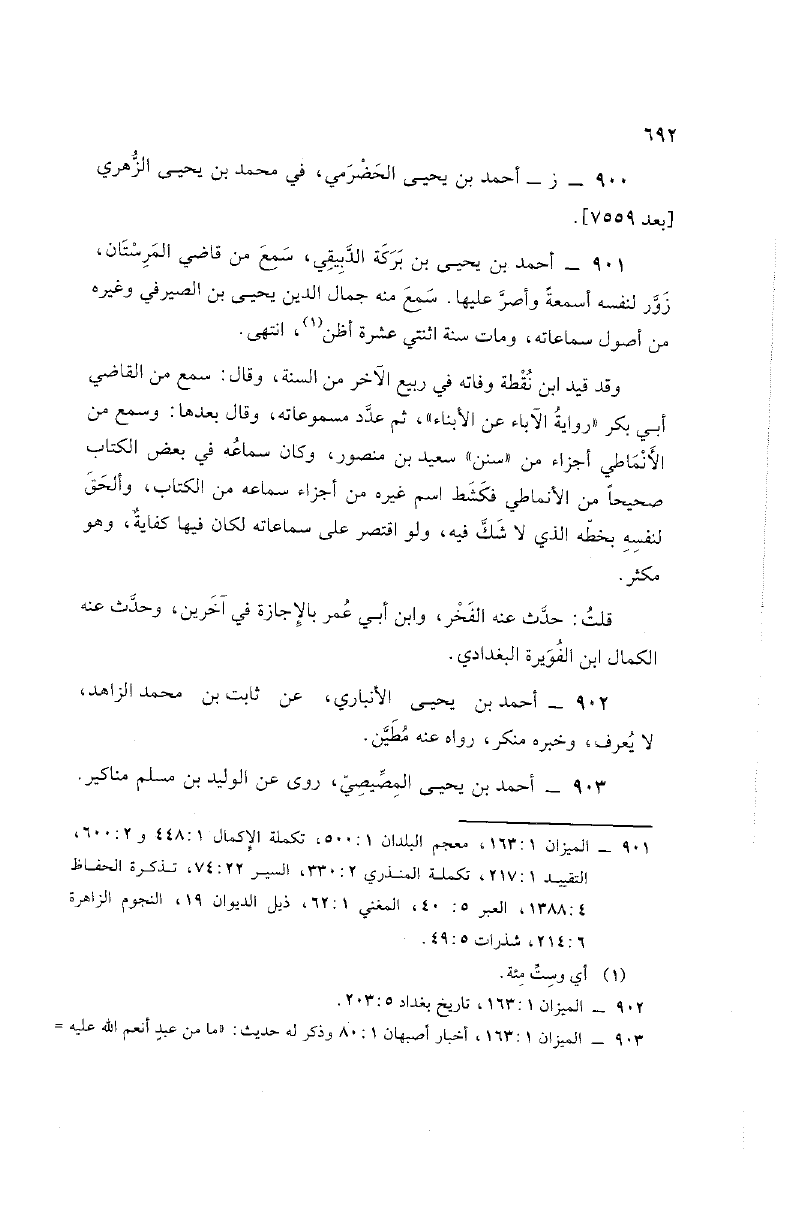 ٦٩٢
٩٠٠ ــ ز ــ أحمد بن يحيى الحَضْرَمي، في محمد بن يحيى الزُّهري
[بعد ٧٥٥٩].
٩٠١ ــ أحمد بن يحيى بن بَرَكَة الدَّبِيقِي، سَمِعَ من قاضي المَرِسْتَان،
زَوَّر لنفسه أسمعةً وأصرَّ عليها. سَمِعَ منه جمال الدين يحيى بن الصيرفي وغيره
من أصول سماعاته، ومات سنة اثنتي عشرة أظن(١)، انتهى.
وقد قيد ابن نُقْطة وفاته في ربيع الآخر من السنة، وقال: سمع من القاضي
أبي بكر «روايةُ الآباء عن الأبناء»، ثم عدَّد مسموعاته، وقال بعدها: وسمع من
الأَنْمَاطي أجزاء من «سنن» سعيد بن منصور، وكان سماعُه في بعض الكتاب
صحيحاً من الأنماطي فكَشَط اسم غيره من أجزاء سماعه من الكتاب، وألحَقَ
لنفسِهِ بخطّه الذي لا شَكَّ فيه، ولو اقتصر على سماعاته لكان فيها كفايةٌ، وهو
مكثر.
قلتُ: حدَّث عنه الفَخْر، وابن أبي عُمر بالإجازة في آخَرين، وحدَّث عنه
الكمال ابن الفُوَيرة البغدادي.
٩٠٢ ــ أحمد بن يحيى الأنباري، عن ثابت بن محمد الزاهد،
لا يُعرف، وخبره منكر، رواه عنه مُطَيَّن.
٩٠٣ ــ أحمد بن يحيى المِصِّيصِيّ، روى عن الوليد بن مسلم مناكير.
٩٠١ ــ الميزان ١:١٦٣، معجم البلدان ١:٥٠٠، تكملة الإكمال ١:٤٤٨ و ٢:٦٠٠،
التقييد ١:٢١٧، تكملة المنذري ٢:٣٣٠، السير ٢٢:٧٤، تذكرة الحفاظ
٤:١٣٨٨، العبر ٥: ٤٠، المغني ١:٦٢، ذيل الديوان ١٩، النجوم الزاهرة
٦:٢١٤، شذرات ٥:٤٩.
(١) أي وستِّ مِئة.
٩٠٢ ــ الميزان ١:١٦٣، تاريخ بغداد ٥:٢٠٣.
٩٠٣ ــ الميزان ١:١٦٣، أخبار أصبهان ١:٨٠ وذكر له حديث: «ما من عبدٍ أنعم الله عليه =